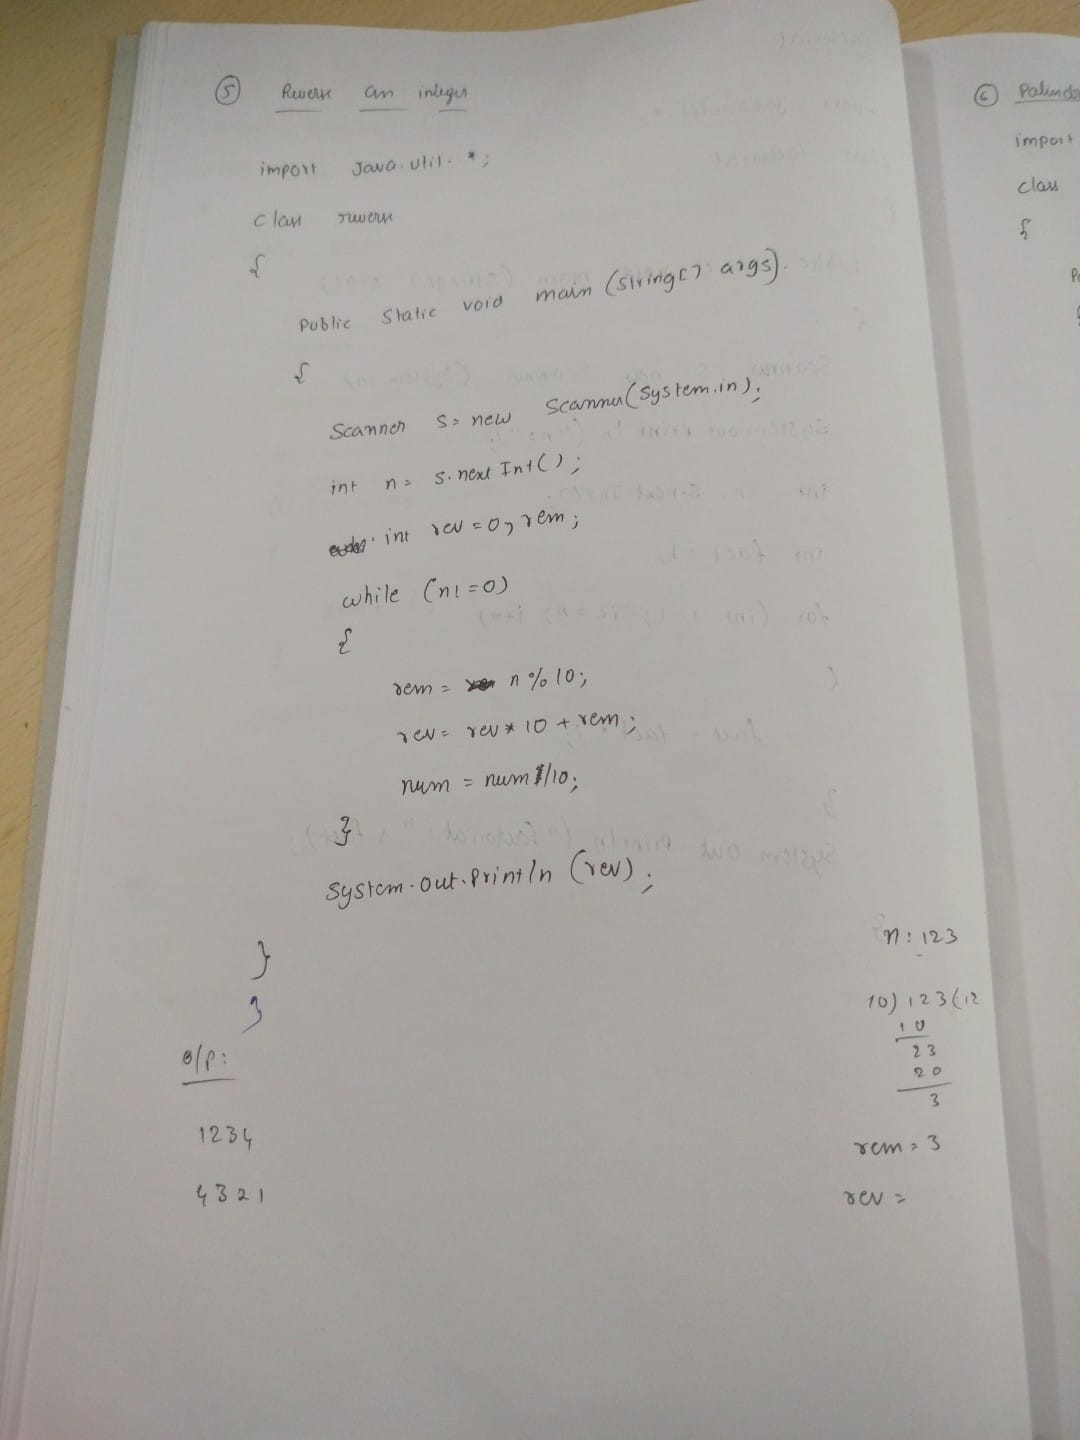 5 Reverse an integer
import Java.util.*;
class reverse
{
Public Static void main (String[] args).
{
Scanner s= new Scanner(System.in);
int n= s.next Int();
int rev=0, rem;
while (n!=0)
{
rem = n%10;
rev= rev*10+rem;
num = num/10;
}
System.out.Println (rev);
}
}
O/P:
1234
4321
n: 123
10) 123(12
10
23
20
3
rem=3
rev=
6 Palindr
import
class
{